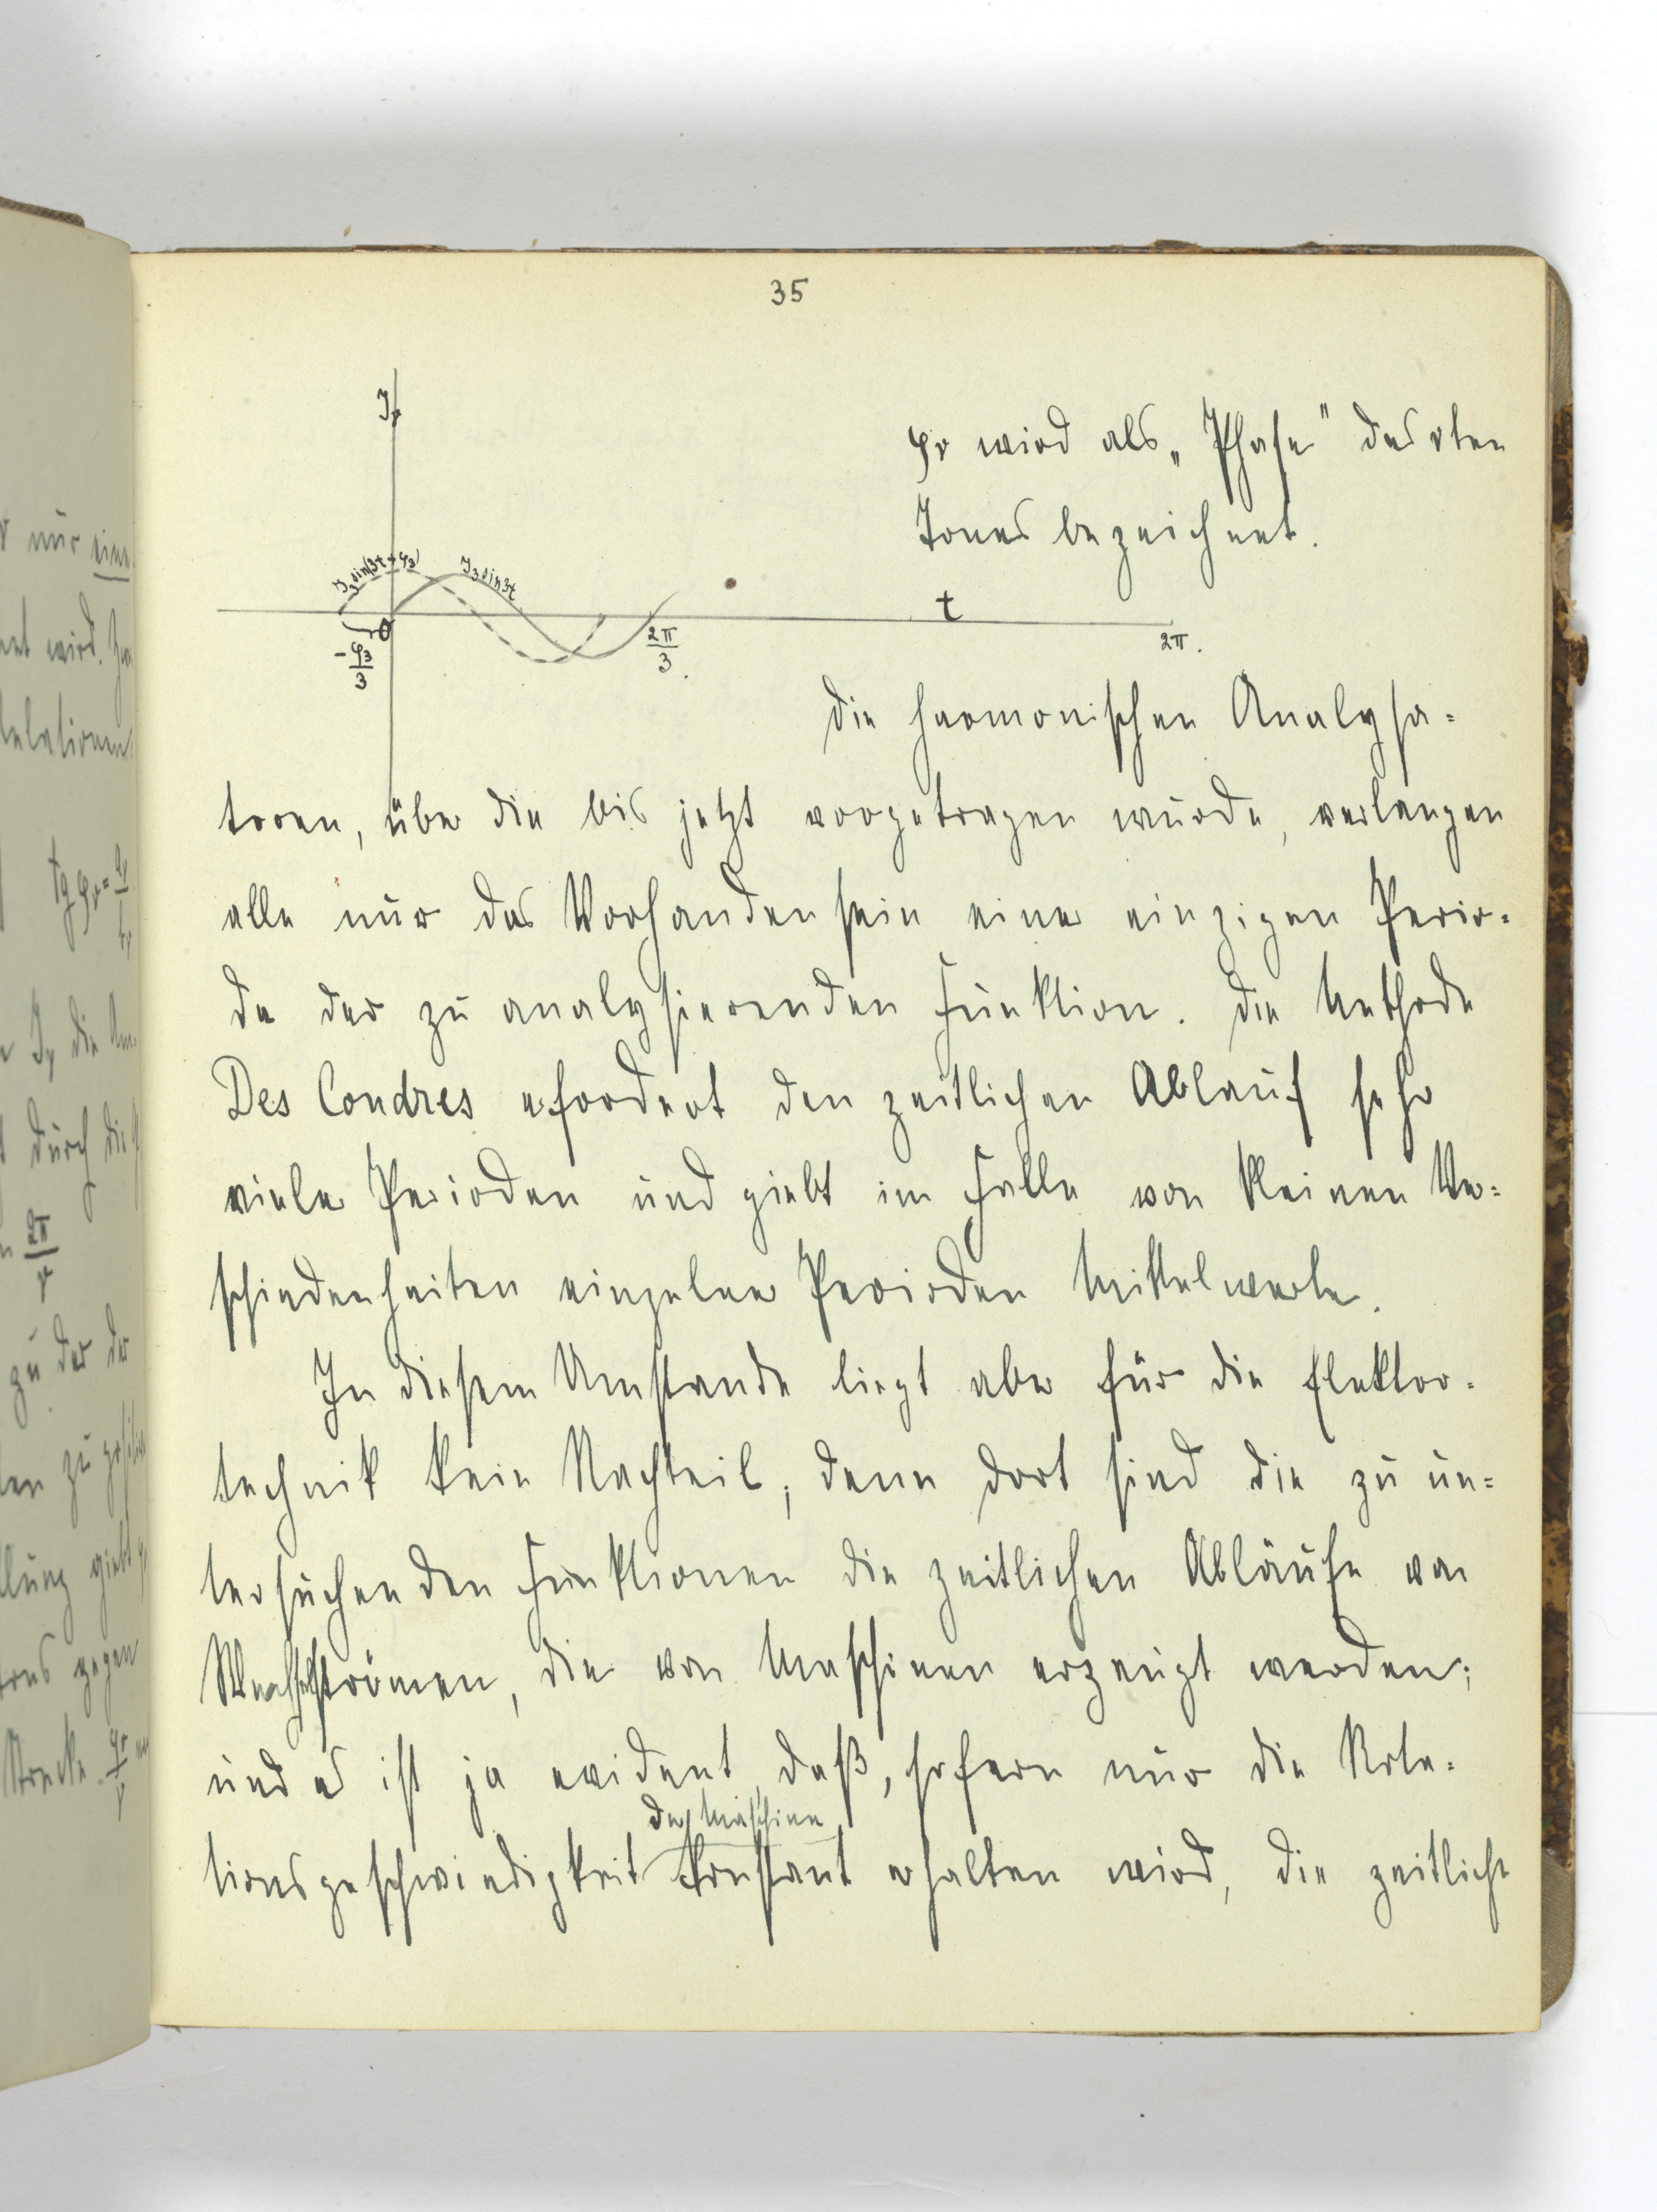 35
J_ν
φ_ν wird als „Phase" des νten
Tones bezeichnet.
J_3 sin(3t+φ_3) J_3 sin 3t
t
0
-φ_3/3
2π/3
2π.
Die harmonischen Analysa=
toren, über die bis jetzt vorgetragen wurde, verlangen
alle nur das Vorhandensein einer einzigen Perio=
de der zu analysierenden Funktion. Die Methode
Des Coudres erfordert den zeitlichen Ablauf sehr
vieler Perioden und giebt im Falle von kleinen Ver=
schiedenheiten einzelner Perioden Mittelwerte.
In diesem Umstande liegt aber für die Elektro=
technik kein Nachteil, denn dort sind die zu un=
tersuchenden Funktionen die zeitlichen Abläufe von
Wechselströmen, die von Maschinen erzeugt werden;
und es ist ja evident, daß, sofern nur die Rota=
der Maschine
tionsgeschwindigkeit konstant erhalten wird, die zeitlich
nur eine
wird.
Relationen
tg φ_ν =
J_ν die
durch die
2π/ν
zu der der
zu
giebt
gegen
Strecke φ_ν/ν